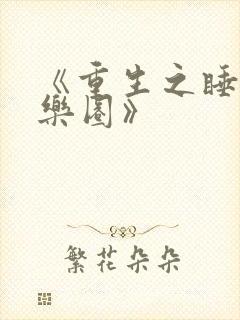 《重生之睡
樂園》
繁花朵朵